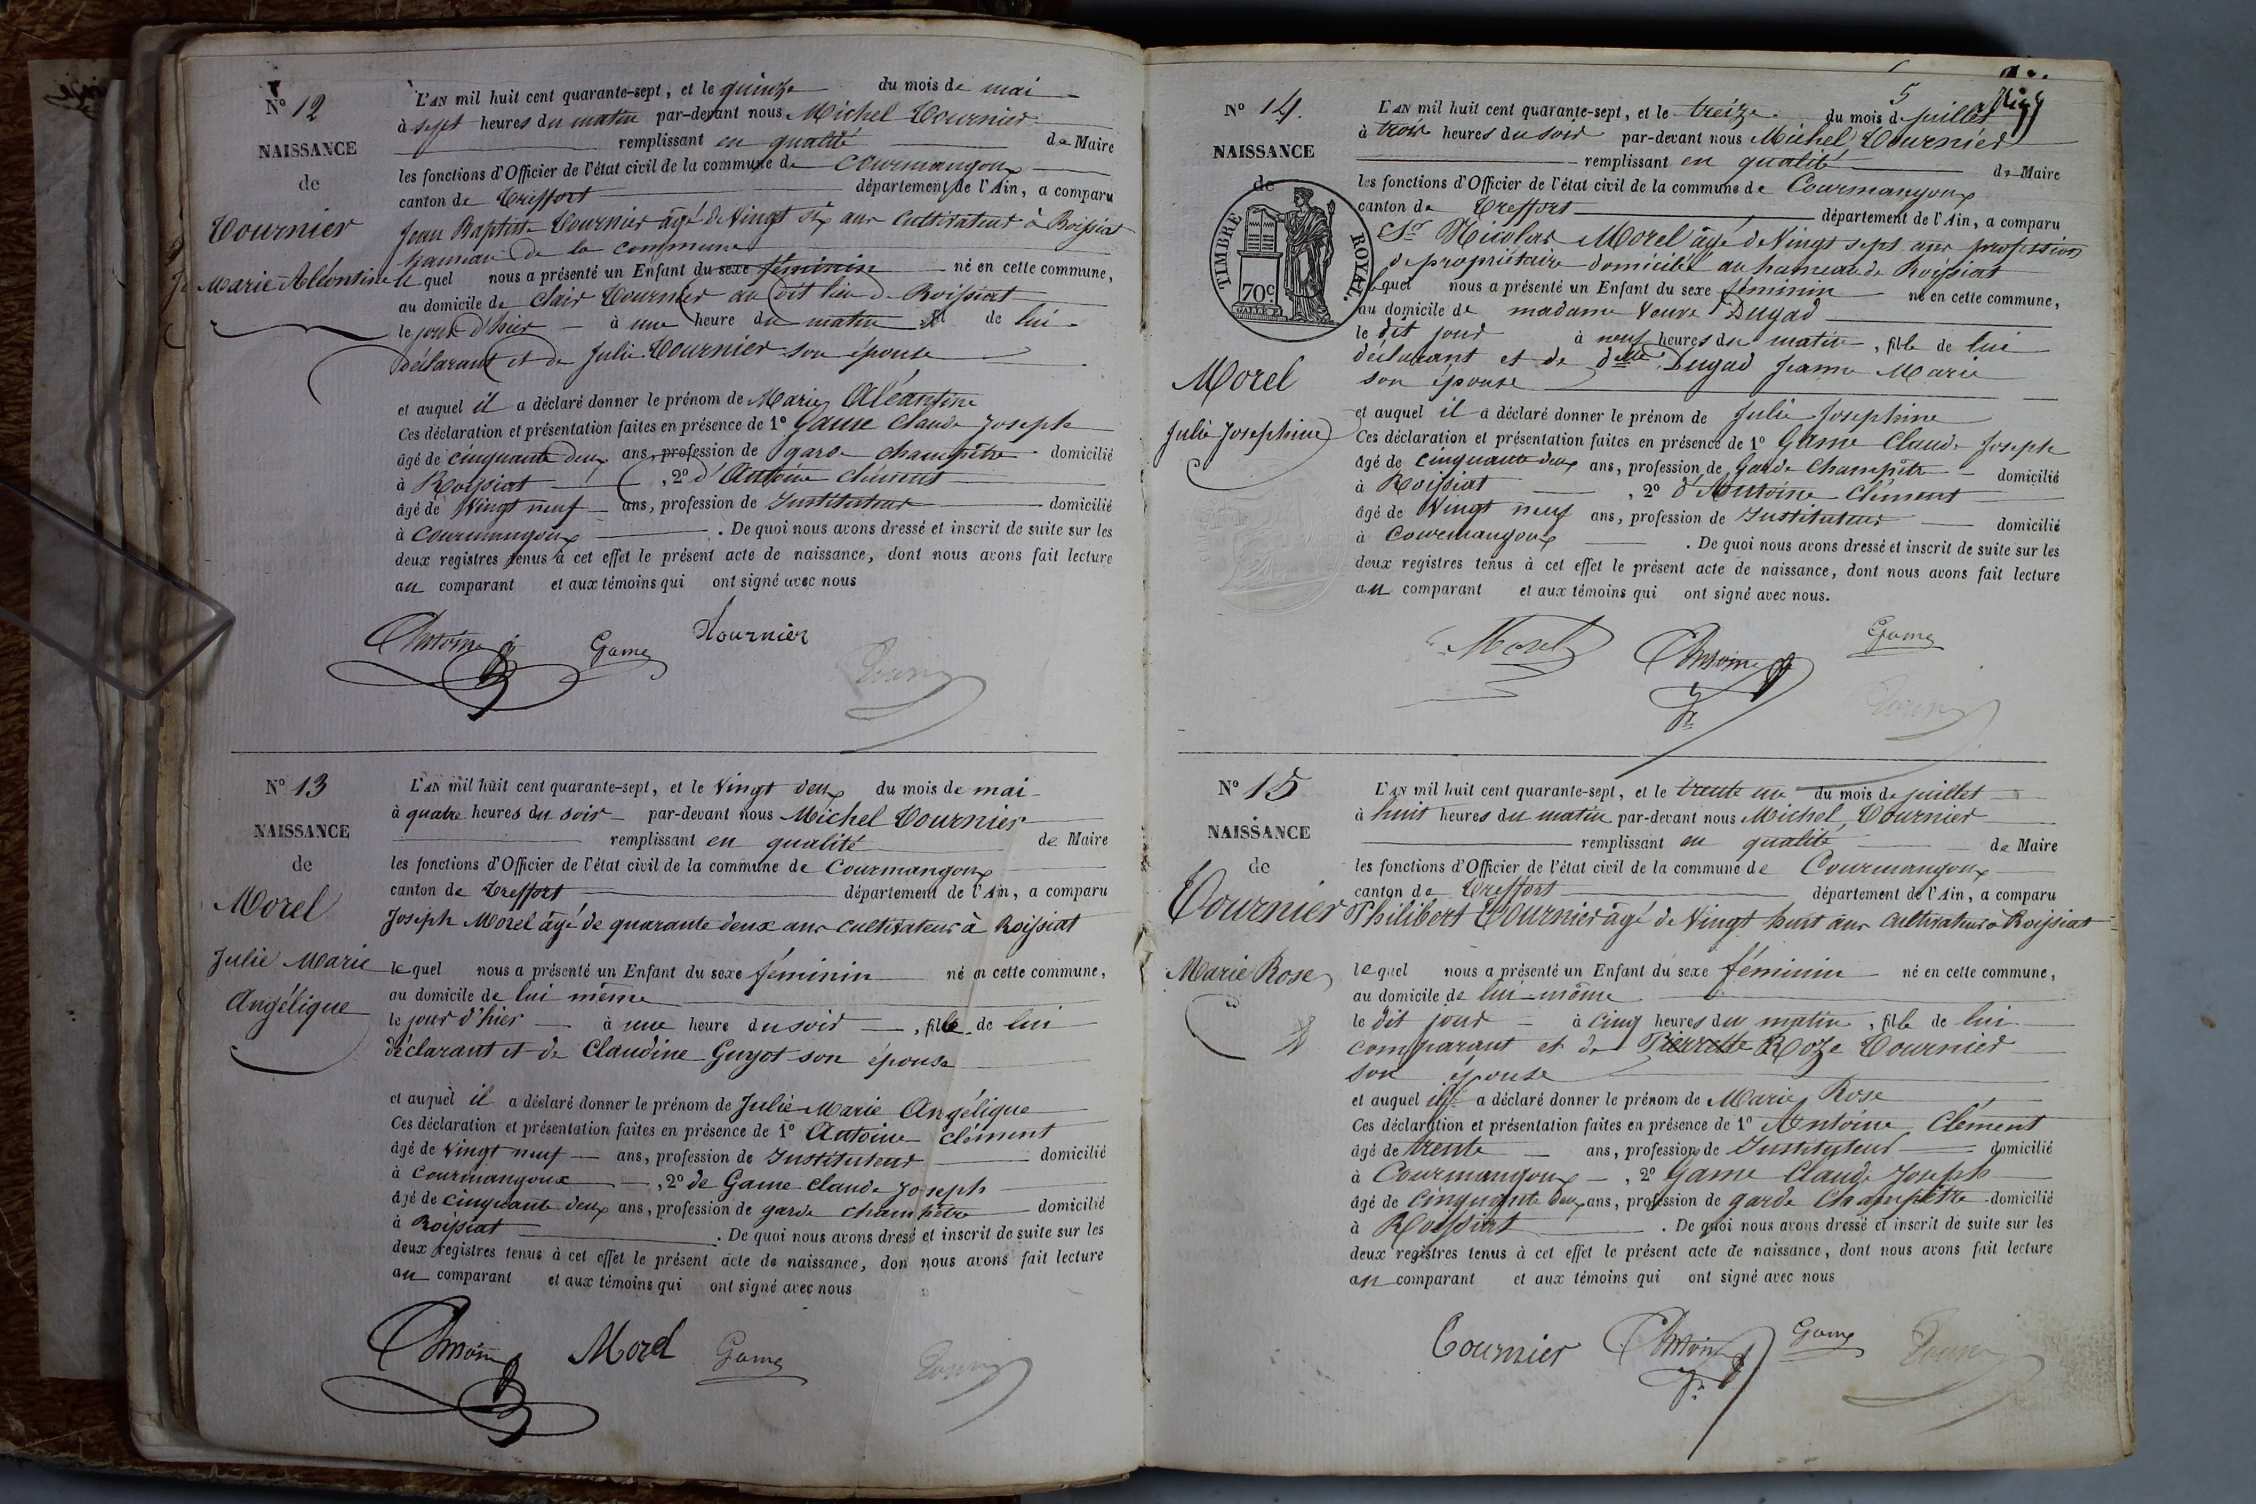 N° 12
NAISSANCE
de
Tournier
Marie Aléontine
L'AN mil huit cent quarante-sept, et le quinze du mois de mai
à sept heures du matin par-devant nous Michel Tournier
remplissant en qualité de Maire
les fonctions d'Officier de l'état civil de la commune de Courmangoux
canton de Treffort département de l'Ain, a comparu
Jean Baptiste Tournier âgé de Vingt six ans Cultivateur à Roissiat
hameau de la commune
lequel nous a présenté un Enfant du sexe féminin né en cette commune,
au domicile de Clair Tournier au dit lieu de Roissiat
le jour d'hier à une heure du matin de lui
déclarant et de Julie Tournier son épouse
et auquel il a déclaré donner le prénom de Marie Aléontine
Ces déclaration et présentation faites en présence de 1° Game Claude Joseph
âgé de cinquante deux ans, profession de garde champêtre domicilié
à Roissiat , 2° d'Antoine Clément
âgé de Vingt neuf ans, profession de Instituteur domicilié
à Courmangoux . De quoi nous avons dressé et inscrit de suite sur les
deux registres tenus à cet effet le présent acte de naissance, dont nous avons fait lecture
au comparant et aux témoins qui ont signé avec nous
Antoine Game Tournier
N° 13
NAISSANCE
de
Morel
Julie Marie
Angélique
L'AN mil huit cent quarante-sept, et le Vingt deux du mois de mai
à quatre heures du soir par-devant nous Michel Tournier
remplissant en qualité de Maire
les fonctions d'Officier de l'état civil de la commune de Courmangoux
canton de Treffort département de l'Ain, a comparu
Joseph Morel âgé de quarante deux ans cultivateur à Roissiat
lequel nous a présenté un Enfant du sexe féminin né en cette commune,
au domicile de lui même
le jour d'hier à une heure du soir , fille de lui
déclarant et de Claudine Guyot son épouse
et auquel il a déclaré donner le prénom de Julie Marie Angélique
Ces déclaration et présentation faites en présence de 1° Antoine Clément
âgé de vingt neuf ans, profession de Instituteur domicilié
à Courmangoux , 2° de Game Claude Joseph
âgé de cinquante deux ans, profession de garde champêtre domicilié
à Roissiat . De quoi nous avons dressé et inscrit de suite sur les
deux registres tenus à cet effet le présent acte de naissance, don nous avons fait lecture
au comparant et aux témoins qui ont signé avec nous
Antoine Morel Game
5
N° 14.
NAISSANCE
de
TIMBRE ROYAL.
70c
Morel
Julie Josephine
L'AN mil huit cent quarante-sept, et le treize du mois de juillet
à trois heures du soir par-devant nous Michel Tournier
remplissant en qualité de Maire
les fonctions d'Officier de l'état civil de la commune de Courmangoux
canton de Treffort département de l'Ain, a comparu
Sr Nicolas Morel âgé de Vingt sept ans profession
de propriétaire domicilié au hameau de Roissiat
lequel nous a présenté un Enfant du sexe féminin né en cette commune,
au domicile de madame Veuve Dugad
le dit jour à neuf heures du matin , fille de lui
déclarant et de delle Dugad Jeanne Marie
son épouse
et auquel il a déclaré donner le prénom de Julie Josephine
Ces déclaration et présentation faites en présence de 1° Game Claude Joseph
âgé de cinquante deux ans, profession de Garde Champêtre domicilié
à Roissiat , 2° d'Antoine Clément
âgé de Vingt neuf ans, profession de Instituteur domicilié
à Courmangoux . De quoi nous avons dressé et inscrit de suite sur les
deux registres tenus à cet effet le présent acte de naissance, dont nous avons fait lecture
au comparant et aux témoins qui ont signé avec nous.
Morel Antoine Game
N° 15
NAISSANCE
de
Tournier
Marie Rose
L'AN mil huit cent quarante-sept, et le trente un du mois de juillet
à huit heures du matin par-devant nous Michel Tournier
remplissant en qualité de Maire
les fonctions d'Officier de l'état civil de la commune de Courmangoux
canton de Treffort département de l'Ain, a comparu
Philibert Tournier âgé de Vingt huit ans Cultivateur à Roissiat
lequel nous a présenté un Enfant du sexe féminin né en cette commune,
au domicile de lui-même
le dit jour à cinq heures du matin , fille de lui
comparant et de Pierrette Roze Tournier
son épouse
et auquel il a déclaré donner le prénom de Marie Rose
Ces déclaration et présentation faites en présence de 1° Antoine Clément
âgé de trente ans, profession de Instituteur domicilié
à Courmangoux , 2° Game Claude Joseph
âgé de cinquante deux ans, profession de garde Champêtre domicilié
à Roissiat . De quoi nous avons dressé et inscrit de suite sur les
deux registres tenus à cet effet le présent acte de naissance, dont nous avons fait lecture
au comparant et aux témoins qui ont signé avec nous
Tournier Antoine Game